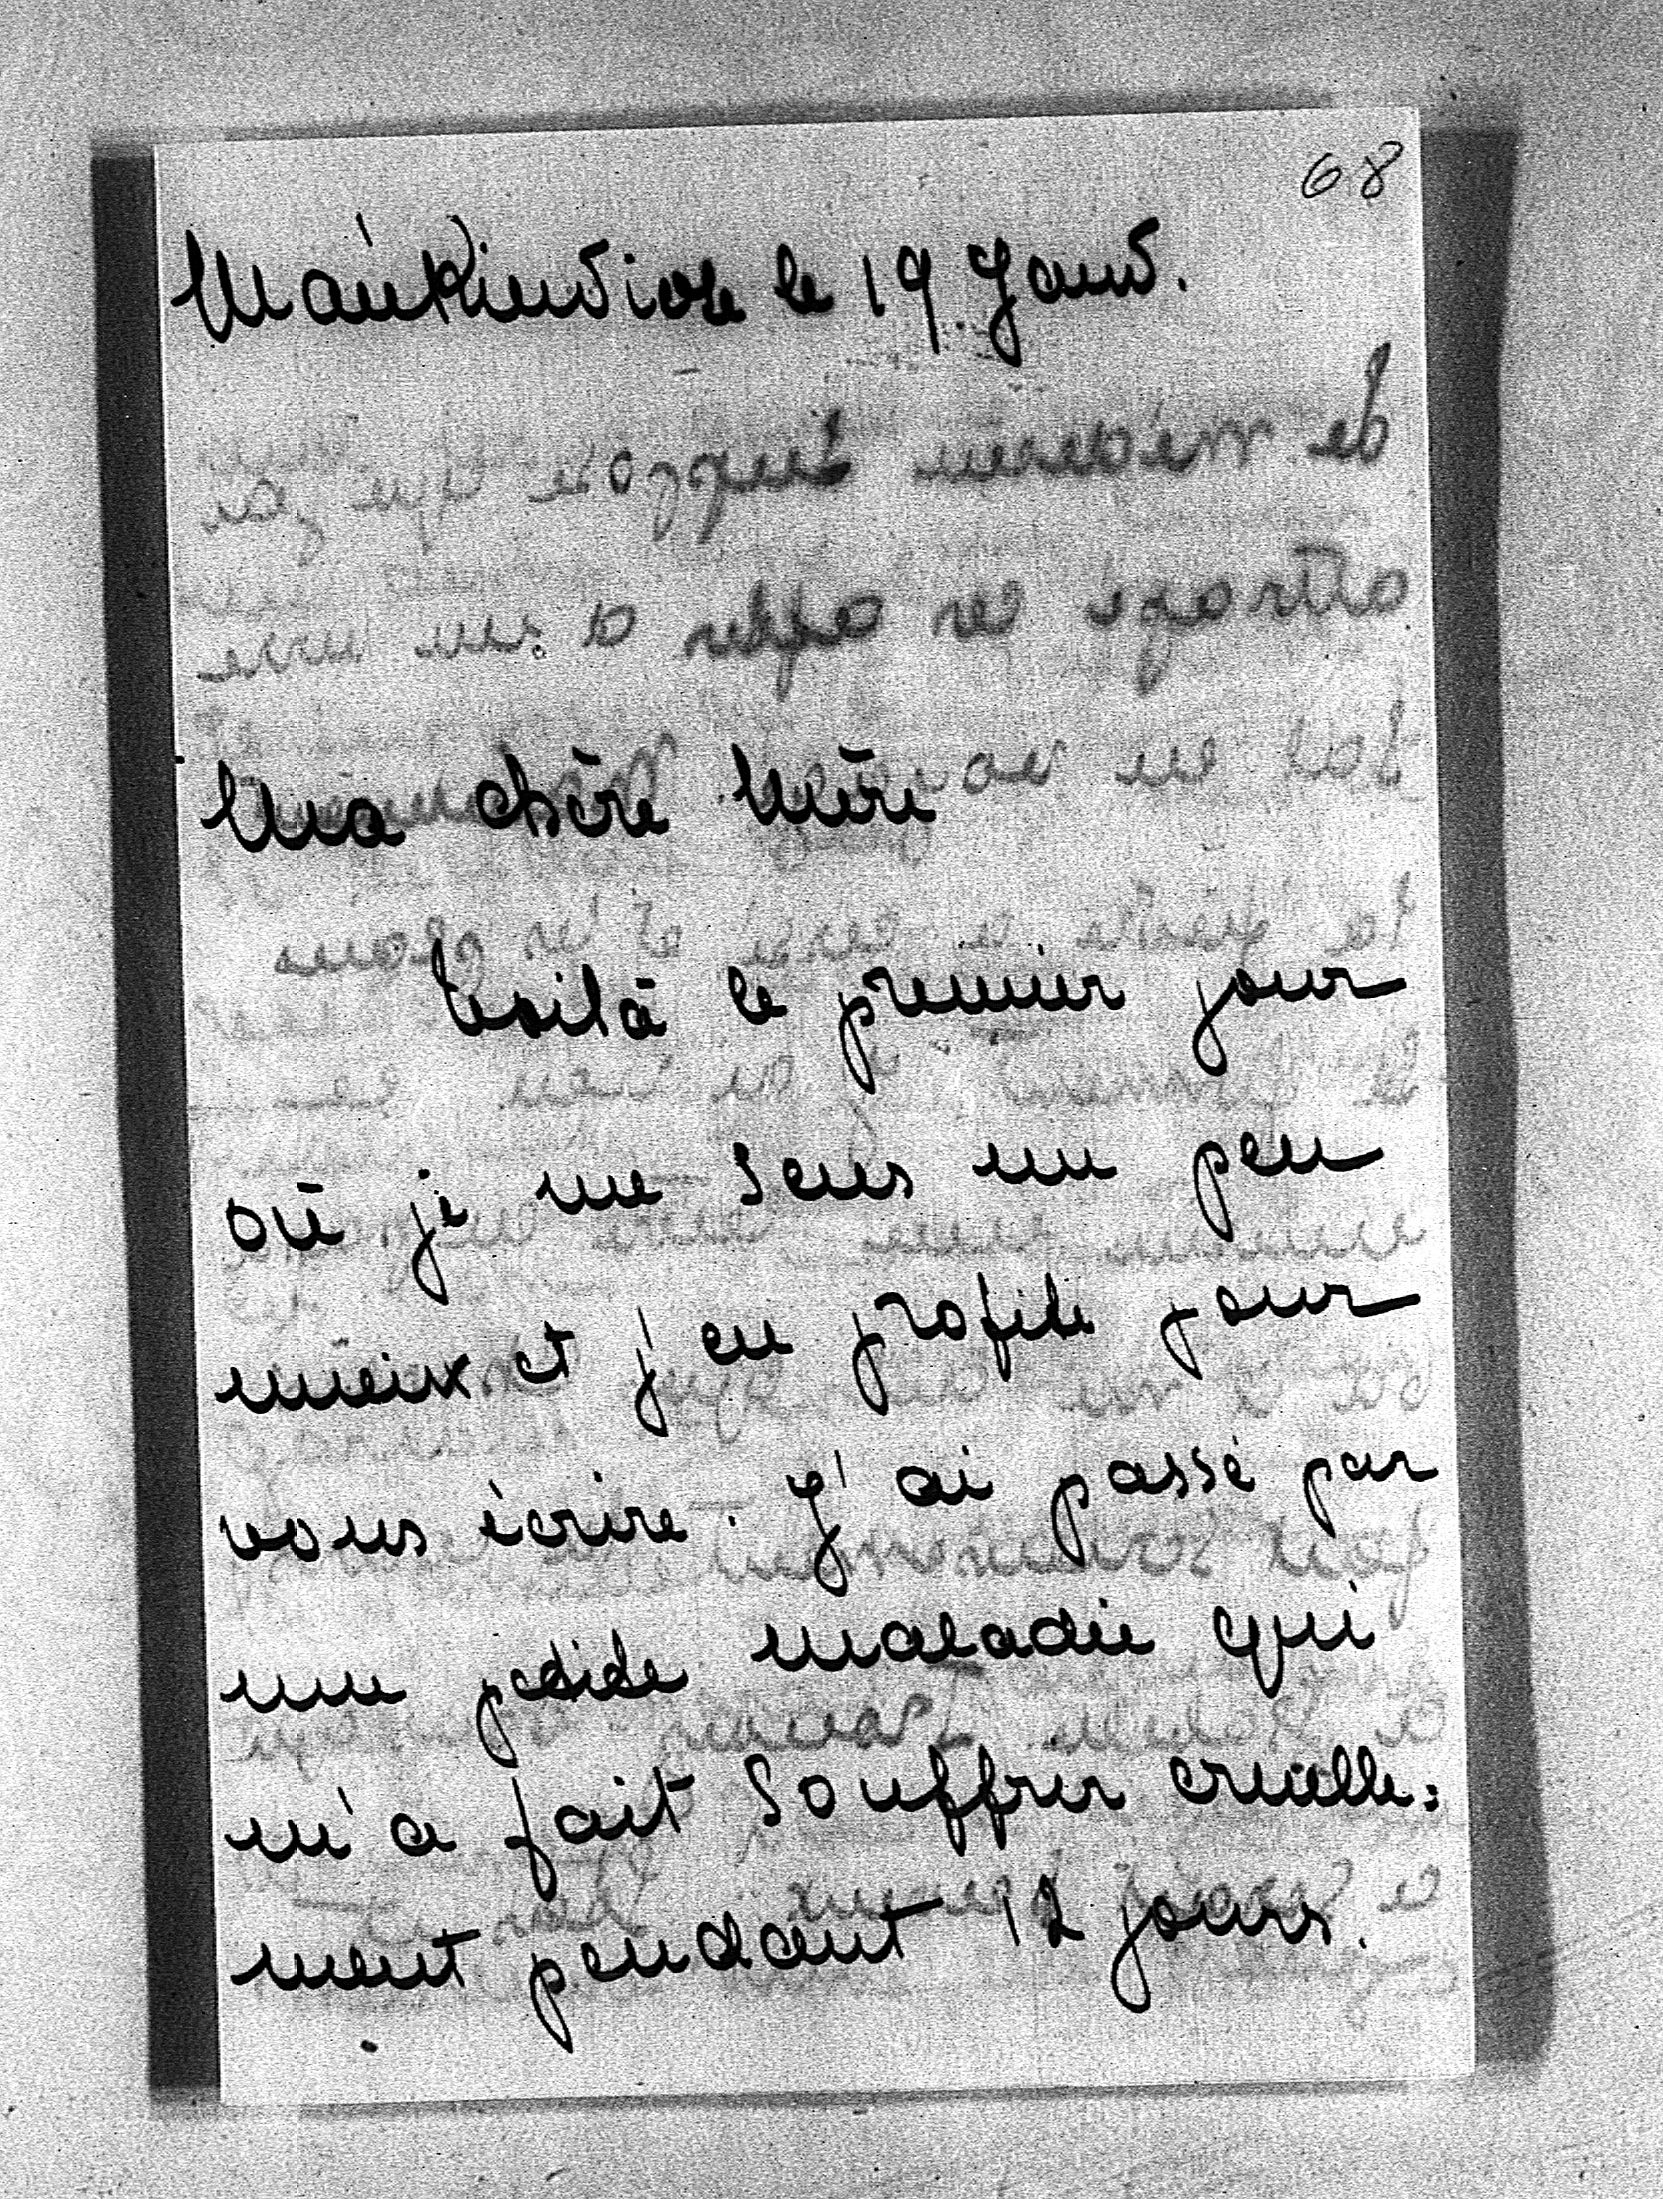 68
Mańkiewicze le 19 Janv.
Ma chère Mère
Voilà le premier jour
où je me sens un peu
mieux et j'en profite pour
vous écrire. J'ai passé par
une petite maladie qui
m'a fait souffrir cruelle=
ment pendant 12 jours.